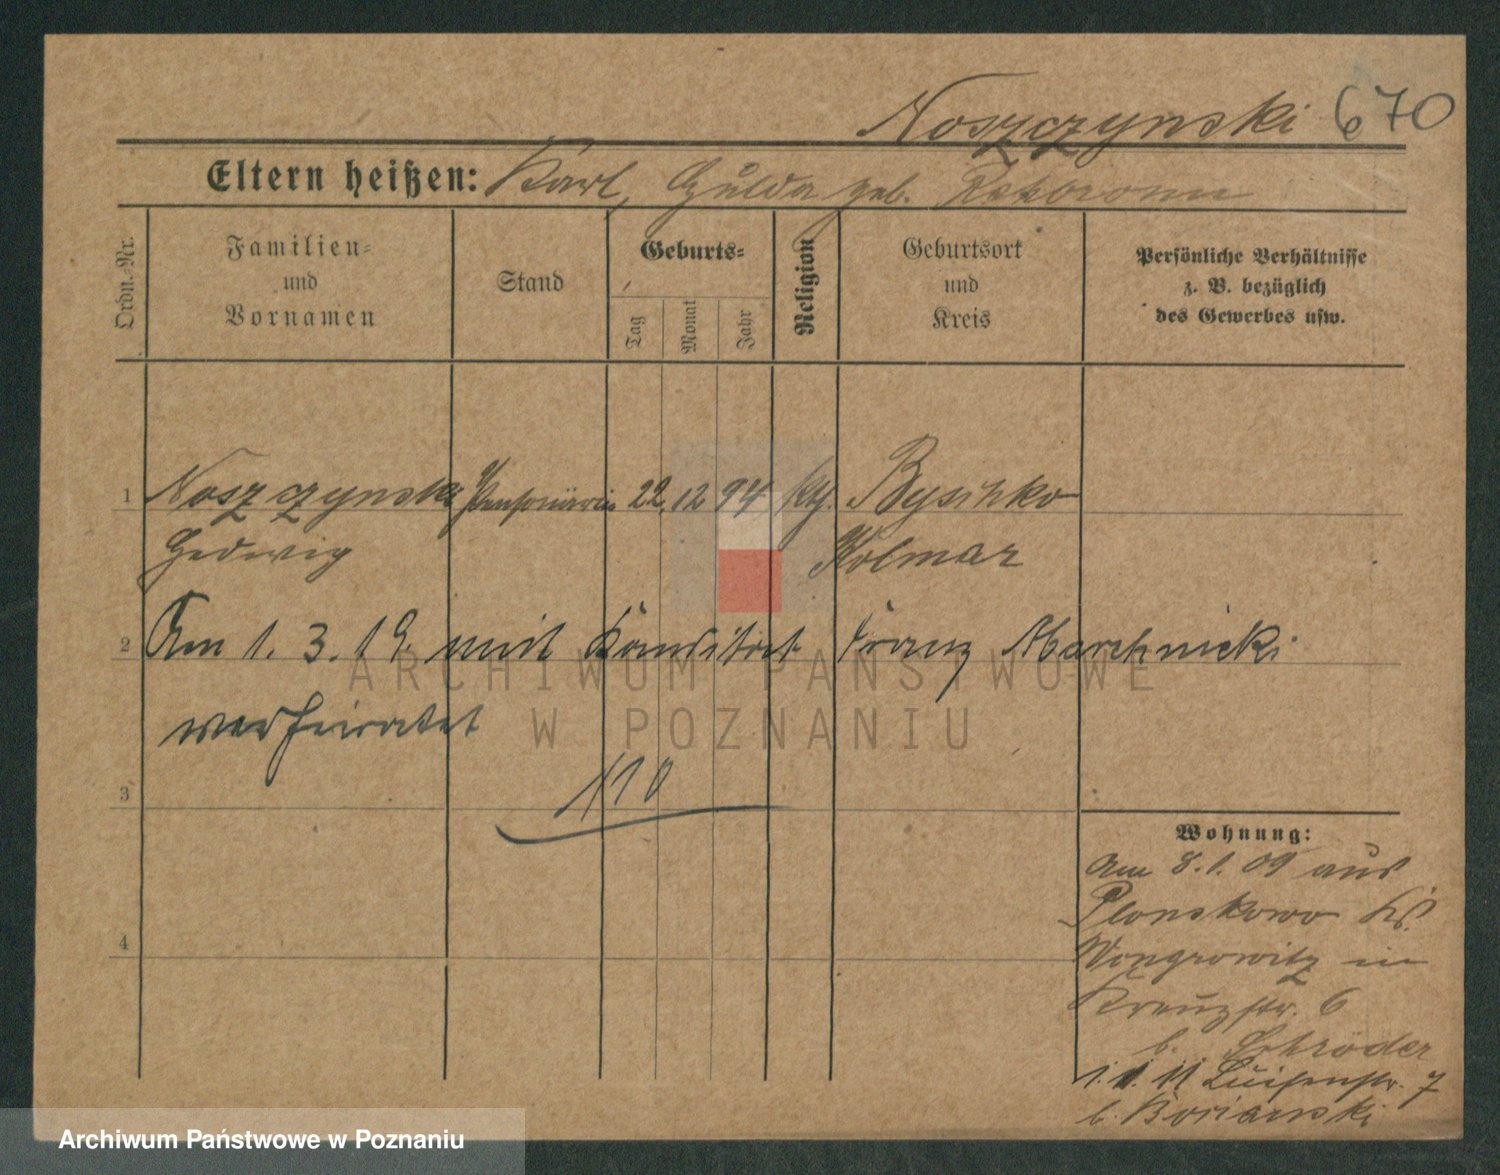 Noszczynski 670
Eltern heißen: Karl, Hulda geb.
Ordn.-Nr.
Familien-
und
Vornamen
Stand
Geburts-
Tag
Monat
Jahr
Religion
Geburtsort
und
Kreis
Persönliche Verhältnisse
z. B. bezüglich
des Gewerbes usw.
1 Noszczynski Pensionärin 22. 12 94 Bysihko
Hedwig Kolmar
2 Am 1. 3. 19. mit Franz Marchnicki
verheiratet
110
3
Wohnung:
Am 8.1.09 aus
Plonskowo Ks.
4
Wongrowitz in
Kreuzstr. 6
b. Schröder
1.1.11 Luisenstr. 7
b.
ARCHIWUM PAŃSTWOWE
W POZNANIU
Archiwum Państwowe w Poznaniu